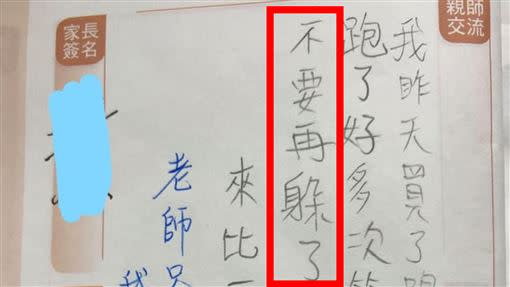 親師
交流
我昨天買了
跑了好多次
不要再躲了
來比
老師
家長
簽名